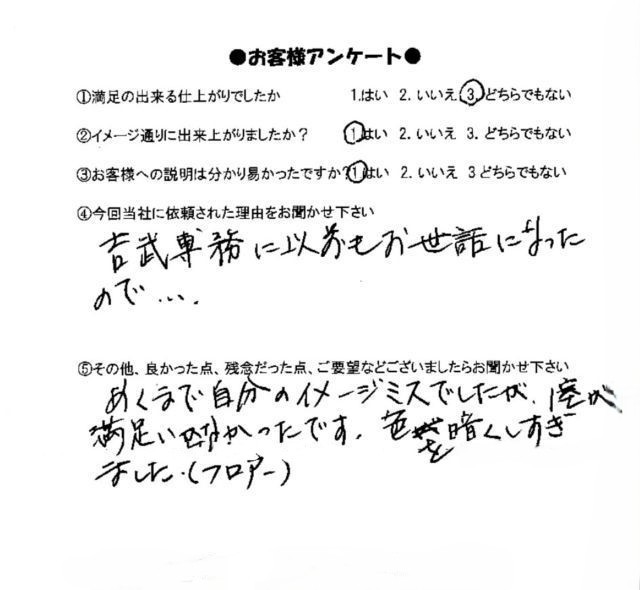 ●お客様アンケート●
①満足の出来る仕上がりでしたか 1.はい 2.いいえ 3.どちらでもない
②イメージ通りに出来上がりましたか? 1はい 2.いいえ 3.どちらでもない
③お客様への説明は分かり易かったですか? 1はい 2.いいえ 3どちらでもない
④今回当社に依頼された理由をお聞かせ下さい
吉武専務に以前もお世話になった
ので….
⑤その他、良かった点、残念だった点、ご要望などございましたらお聞かせ下さい
あくまで自分のイメージミスでしたが、1室が
満足いかなかったです。色を暗くしすぎ
ました.(フロアー)